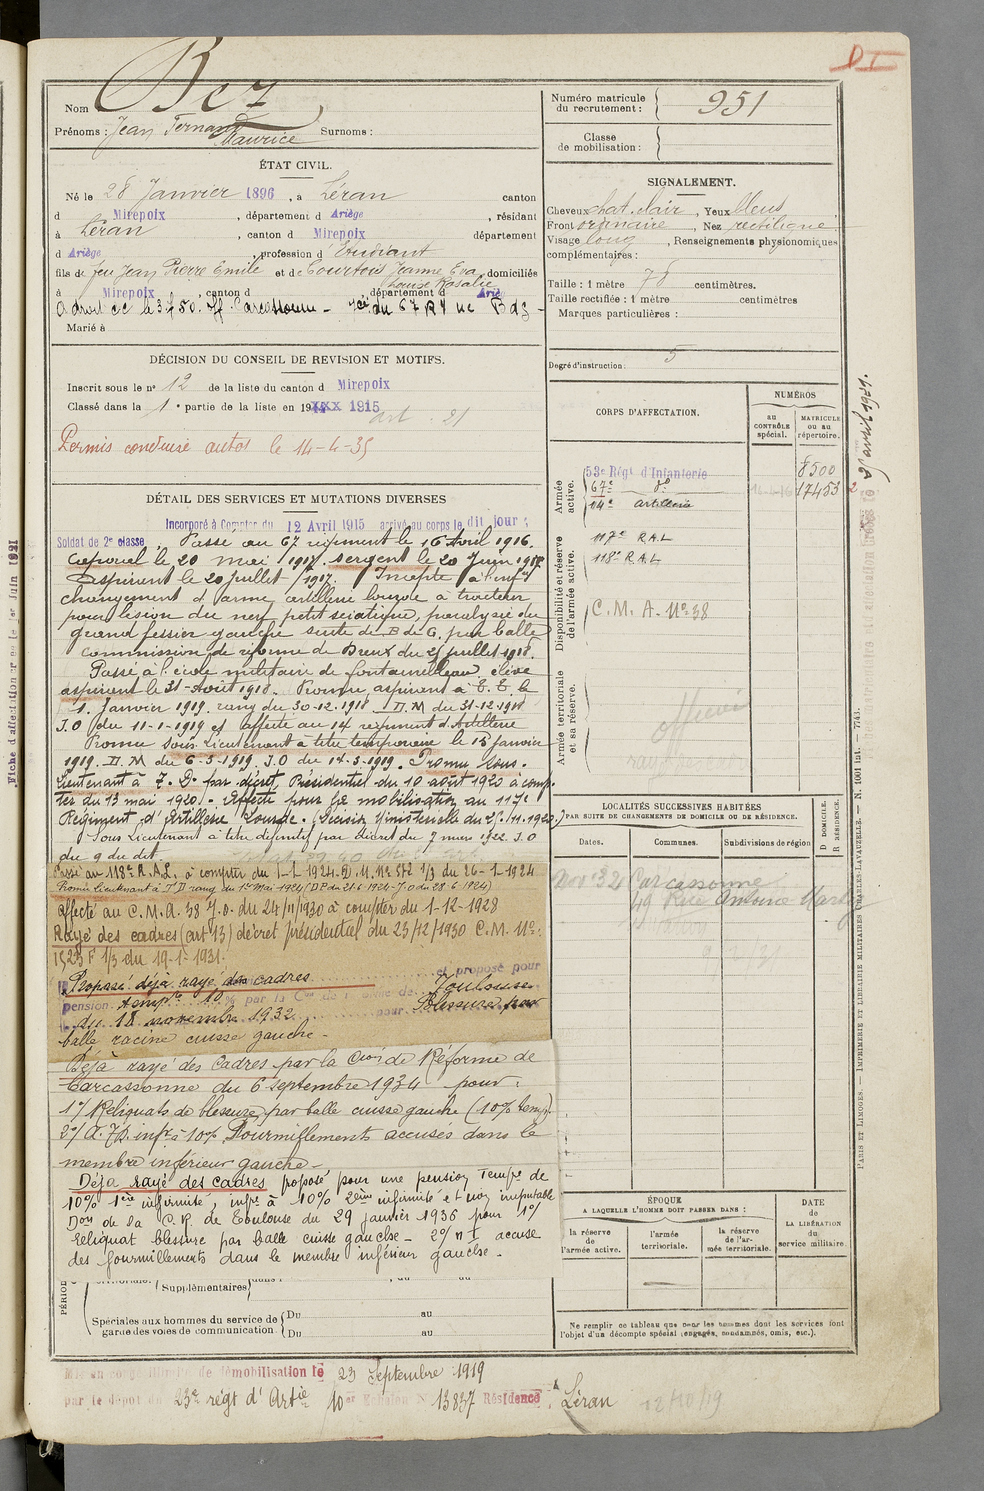 Nom Bez
Prénoms : Jean Fernand Maurice Surnoms :
Numéro matricule du recrutement : 951
Classe de mobilisation :
ÉTAT CIVIL.
Né le 28 Janvier 1896, à Léran canton
d Mirepoix, département d Ariège, résidant
à Léran, canton d Mirepoix département
d Ariège, profession d'Etudiant
fils de feu Jean Pierre Emile et de Courtois Jeanne Eva Louise Rosalie, domiciliés
à Mirepoix, canton d département d Ariège
Marié à
SIGNALEMENT.
Cheveux chat. clair, Yeux bleus
Front ordinaire, Nez rectiligne
Visage long, Renseignements physionomiques
complémentaires :
Taille : 1 mètre 78 centimètres.
Taille rectifiée : 1 mètre centimètres
Marques particulières :
Degré d'instruction : 5
DÉCISION DU CONSEIL DE REVISION ET MOTIFS.
Inscrit sous le n° 12 de la liste du canton d Mirepoix
Classé dans la 1e partie de la liste en 1915
art 21
Permis conduire autos le 14-4-35
DÉTAIL DES SERVICES ET MUTATIONS DIVERSES
Incorporé à Compter du 12 Avril 1915 arrivé au corps le dit jour
Soldat de 2e classe Passé au 67 régiment le 16 Avril 1916.
Caporal le 20 mai 1917. sergent le 20 Juin 1917
Aspirent le 20 juillet 1917. Inapte à l'infie
changement d'arme artillerie lourde à tracteur
pour lésion du nerf petit sciatique, paralysie du
grand fessier gauche suite de B de G. par balle
Commission de réforme de Dreux du 25 juillet 1918.
Passé à l'école militaire de fontainebleau, élève
aspirent le 31 Août 1918. Promu aspirent à T. T. le
1. Janvier 1919. rang du 30-12-1918. D. M du 31-12-1918
J.O du 11-1-1919 et affecté au 14 régiment d'Artillerie
Promu sous-Lieutenant à titre temporaire le 15 janvier
1919. D. M du 6-3-1919. J.O du 14-3-1919. Promu sous-
Lieutenant à T. D. par décret Présidentiel du 10 août 1920 à comp-
ter du 13 mai 1920. Affecté pour la mobilisation au 117e
Régiment d'Artillerie Lourde.
Sous Lieutenant à titre définitif par décret du 7 mars 1922. J.O
du 9 du dit
Passé au 118e R.A.L. à compter du 1-1-1924. D. M. No 572 1/3 du 26-1-1924
Promu lieutenant à T.D rang du 1er Mai 1924 (DP du 21-6-1924-J.O du 28-6-1924)
Affecté au C.M.A. 38 J.O. du 24/11/1930 à compter du 1-12-1928
Rayé des cadres (art 13) décret présidentiel du 23/12/1930 C.M. No
1523 F 1/3 du 19-1-1931.
Proposé déjà rayé des cadres et proposé pour
pension tempre 10 % par la Con de Réforme de Toulouse
du 18 novembre 1932 pour Blessure par
balle racine cuisse gauche
Déjà rayé des Cadres par la Cion de Réforme de
Carcassonne du 6 septembre 1934 pour :
1°/ Reliquats de blessure par balle cuisse gauche (10% temp)
2°/ infre à 10% Fourmillements accusés dans le
membre inférieur gauche
Déja rayé des cadres proposé pour une pension Tempre de
10% 1ère infirmité, infre à 10% 2ème infirmité et non imputable
Don de la C.R. de Toulouse du 29 janvier 1936 pour 1°/
reliquat blessure par balle cuisse gauche - 2°/ accuse
des fourmillements dans le membre inférieur gauche
Supplémentaires
Spéciales aux hommes du service de garde des voies de communication. { Du au
Du au
Mis en congé illimité de démobilisation le 23 Septembre 1919
par le dépôt du 23e régt d'Artie 10er Echelon No 13837 Résidence à Léran
12/10/19
CORPS D'AFFECTATION.
NUMÉROS
au CONTRÔLE spécial.
MATRICULE ou au répertoire.
Armée active.
53e Régt d'Infanterie 8500
67e do 17453
14e artillerie
Disponibilité et réserve de l'armée active.
117e R.A.L
118e R.A.L
C.M.A. No 38
Armée territoriale et sa réserve.
officier
LOCALITÉS SUCCESSIVES HABITÉES
PAR SUITE DE CHANGEMENTS DE DOMICILE OU DE RÉSIDENCE.
Dates. Communes. Subdivisions de région D DOMICILE. R RÉSIDENCE.
Nov 32 Carcassonne
49 Rue Antoine Marty
ÉPOQUE
A LAQUELLE L'HOMME DOIT PASSER DANS :
la réserve de l'armée active.
l'armée territoriale.
la réserve de l'armée territoriale.
DATE de LA LIBÉRATION du service militaire.
Ne remplir ce tableau que pour les hommes dont les services font
l'objet d'un décompte spécial (engagés, condamnés, omis, etc.).
PARIS ET LIMOGES. — IMPRIMERIE ET LIBRAIRIE MILITAIRES CHARLES-LAVAUZELLE. — N. 1001 int. — 7743.